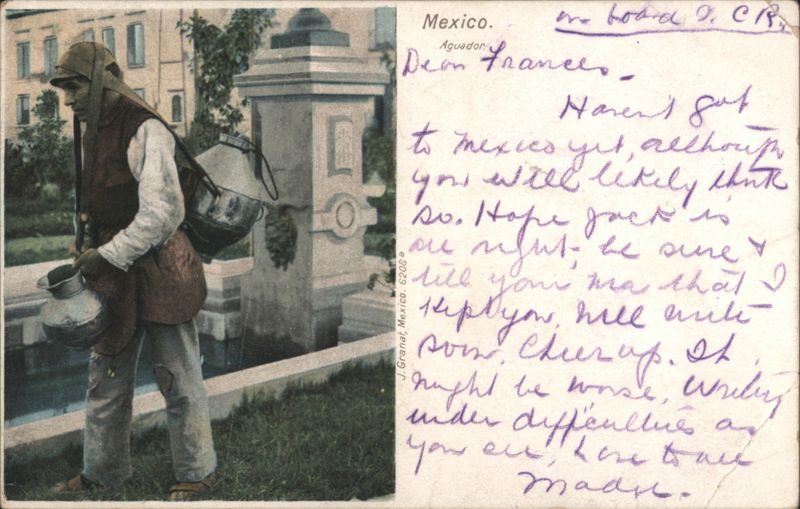 Mexico.
Aguador
on board I. C R.
Dear Frances -
Haven't got
to Mexico yet, although
you will likely think
so. Hope Jack is
all right, be sure &
tell your ma that I
kept you. Will write
soon. Cheer up. It
might be worse. Writing
under difficulties as
you see, love to all
Madge.
J. Granat, Mexico. 6206a